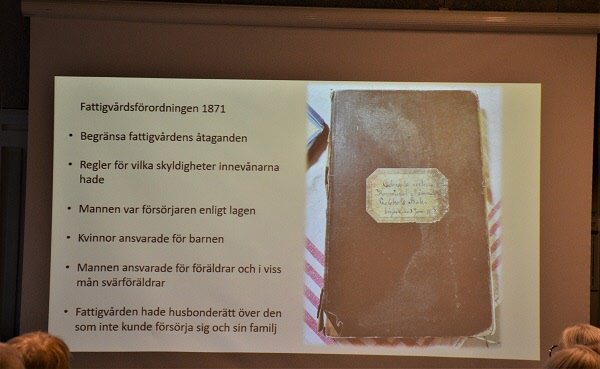 Fattigvårdsförordningen 1871
• Begränsa fattigvårdens åtaganden
• Regler för vilka skyldigheter innevånarna
hade
• Mannen var försörjaren enligt lagen
• Kvinnor ansvarade för barnen
• Mannen ansvarade för föräldrar och i viss
mån svärföräldrar
• Fattigvården hade husbonderätt över den
som inte kunde försörja sig och sin familj